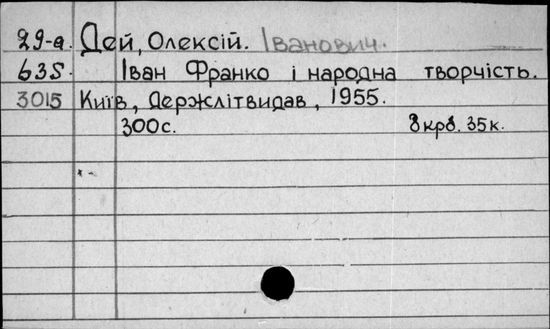 29-а. Дей, Олексій. Іванович.
635. Іван Франко і народна творчість.
3015 Київ, Держлітвидав, 1955.
300с. 8 крб. 35к.